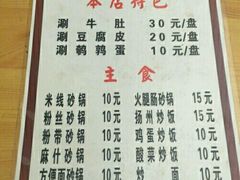 本店特色
涮牛肚 30元/盘
涮豆腐皮 20元/盘
涮鹌鹑蛋 10元/盘
主食
米线砂锅 10元 火腿肠砂锅 15元
粉丝砂锅 10元 扬州炒饭 15元
粉带砂锅 10元 鸡蛋炒饭 10元
麻什砂锅 10元 酸菜炒饭 10元
方便面砂锅 10元 炒面 10元